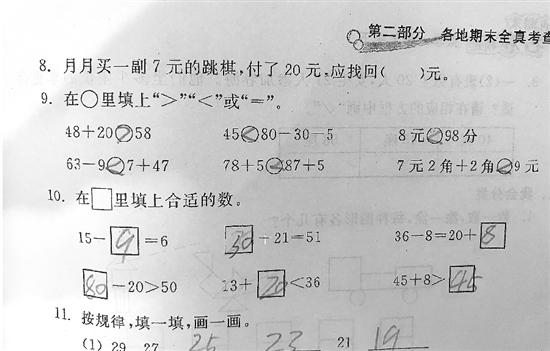 第二部分 各地期末全真考查
8. 月月买一副7元的跳棋,付了20元,应找回( )元。
9. 在○里填上“>”“<”或“=”。
48+20>58 45<80-30-5 8元>98分
63-9 7+47 78+5<87+5 7元2角+2角<9元
10. 在□里填上合适的数。
15-9=6 30+21=51 36-8=20+8
80-20>50 13+20<36 45+8>45
11. 按规律,填一填,画一画。
(1) 29 27 25 23 21 19